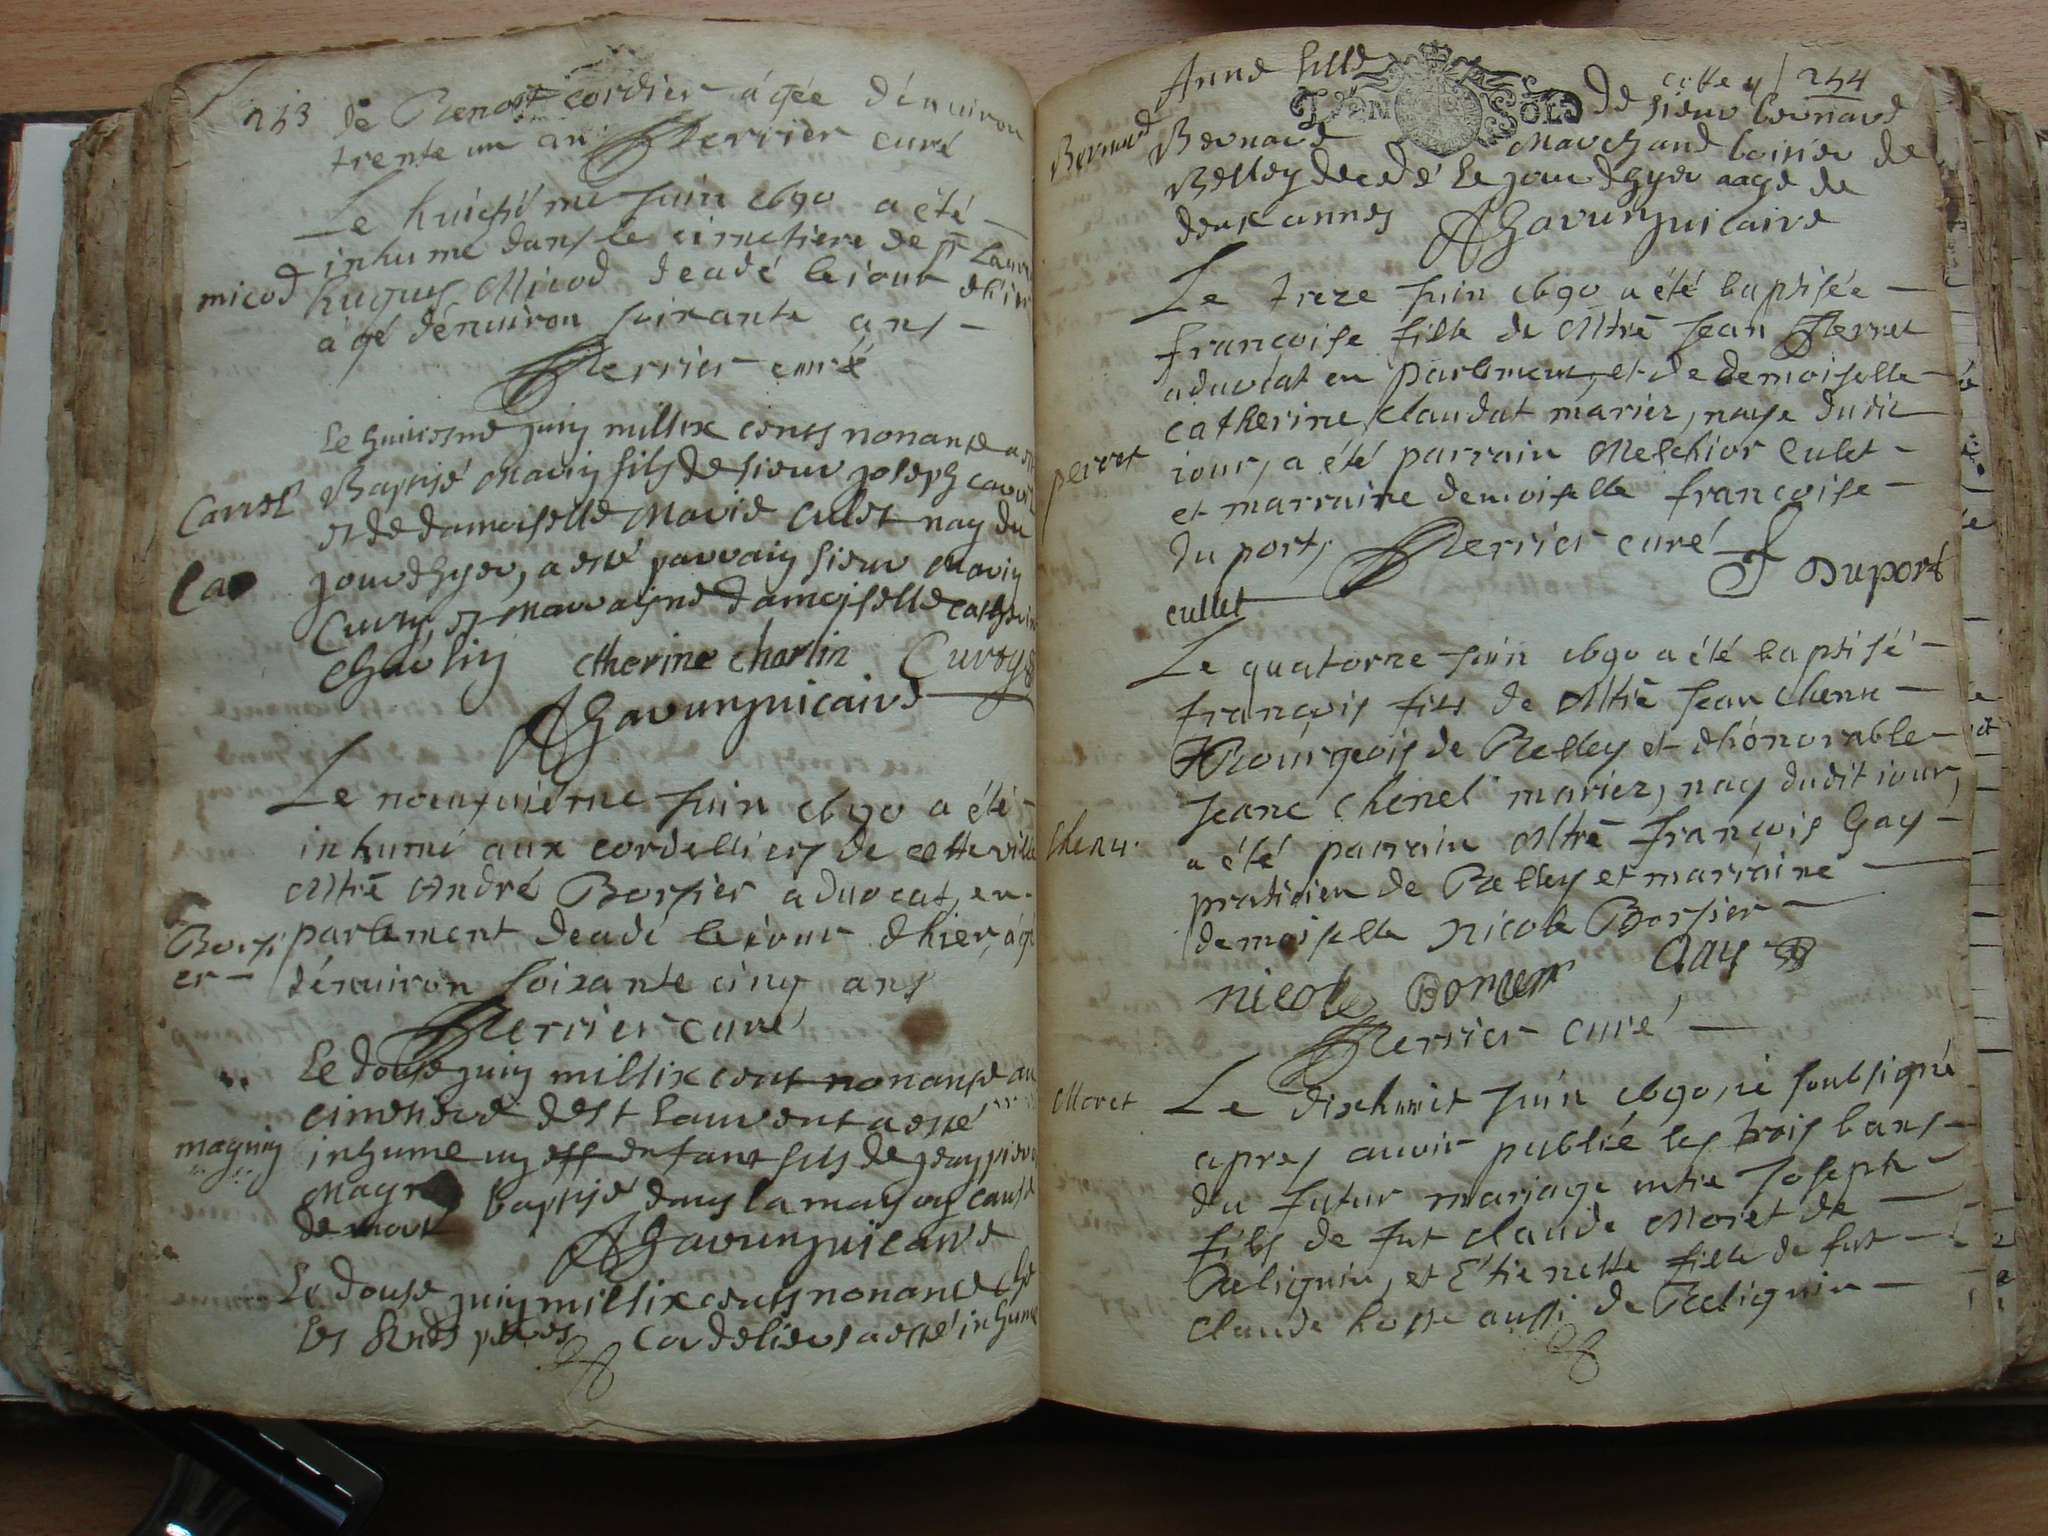 243
de Benoist cordier ágée dénuiron
trente un an Perrier curé
Le huictiéme Juin 1690 a été
inhumé dans le cimetiere de St Laure
micod
hugues Micod decadé le iour dhier
ágé dénuiron soixante ans
Perrier curé
Le huitiesme juin mil six cents nonante a esté
Carrel
Baptisé Marin fils de sieur Joseph Carrel
et de damoiselle Marie Culet nay du
jour dhyer, a esté parrain sieur Marin
Ca
et marraisne damoiselle Catherine
Charlin ctherine charlin
vicaire
Le neufuiéme Juin 1690 a été
inhumé aux cordelliers de cette ville
Mtre André Borsier aduocat en
Borsi
er
parlement decadé le iour dhier, ágé
dénuiron soixante cinq ans
Perrier curé
Le douse juin mil six cent nonante au
cimentiere de St Laurent a esté
magnin
inhume un enfant fils de jean pierre
baptisé dans la maison cause
de mort
vicaire
Le douse juin mil six cents nonante chez
les Rnds peres Cordeliers a esté inhume
244
Anne fille de sieur bernard
Bernard
Bernard Marchand boisier de
Belley decedé le jour dhyer aagé de
deux annes vicaire
Le treze Juin 1690 a été baptisée
françoise fille de Mtre Jean Perret
aduocat en parlement, et de demoiselle
catherine Claudat mariez, naye dudit
perret
iour, a été parrain Melchior Culet
et marraine demoiselle françoise
du port, Perrier curé
f Duport
cullet
Le quatorze Juin 1690 a été baptisé
françois fils de Mtre Jean Chenu
Bourgeois de Belley et dhónorable
Jeane Chenel mariez, nay dudit iour,
Chenu.
a été parrain Mtre françois Gay
praticien de Belley et marraine
demoiselle Nicole Borsier
Gay
nicole Borsier
Perrier curé
Moret
Le dixhuict Juin 1690, ie soubsigné
apres auoir publié les trois bans
du futur mariage entre Joseph
fils de fut claude Moret de
Pelignin, et Etienette fille de fut
claude hoste aussi de Pelignin